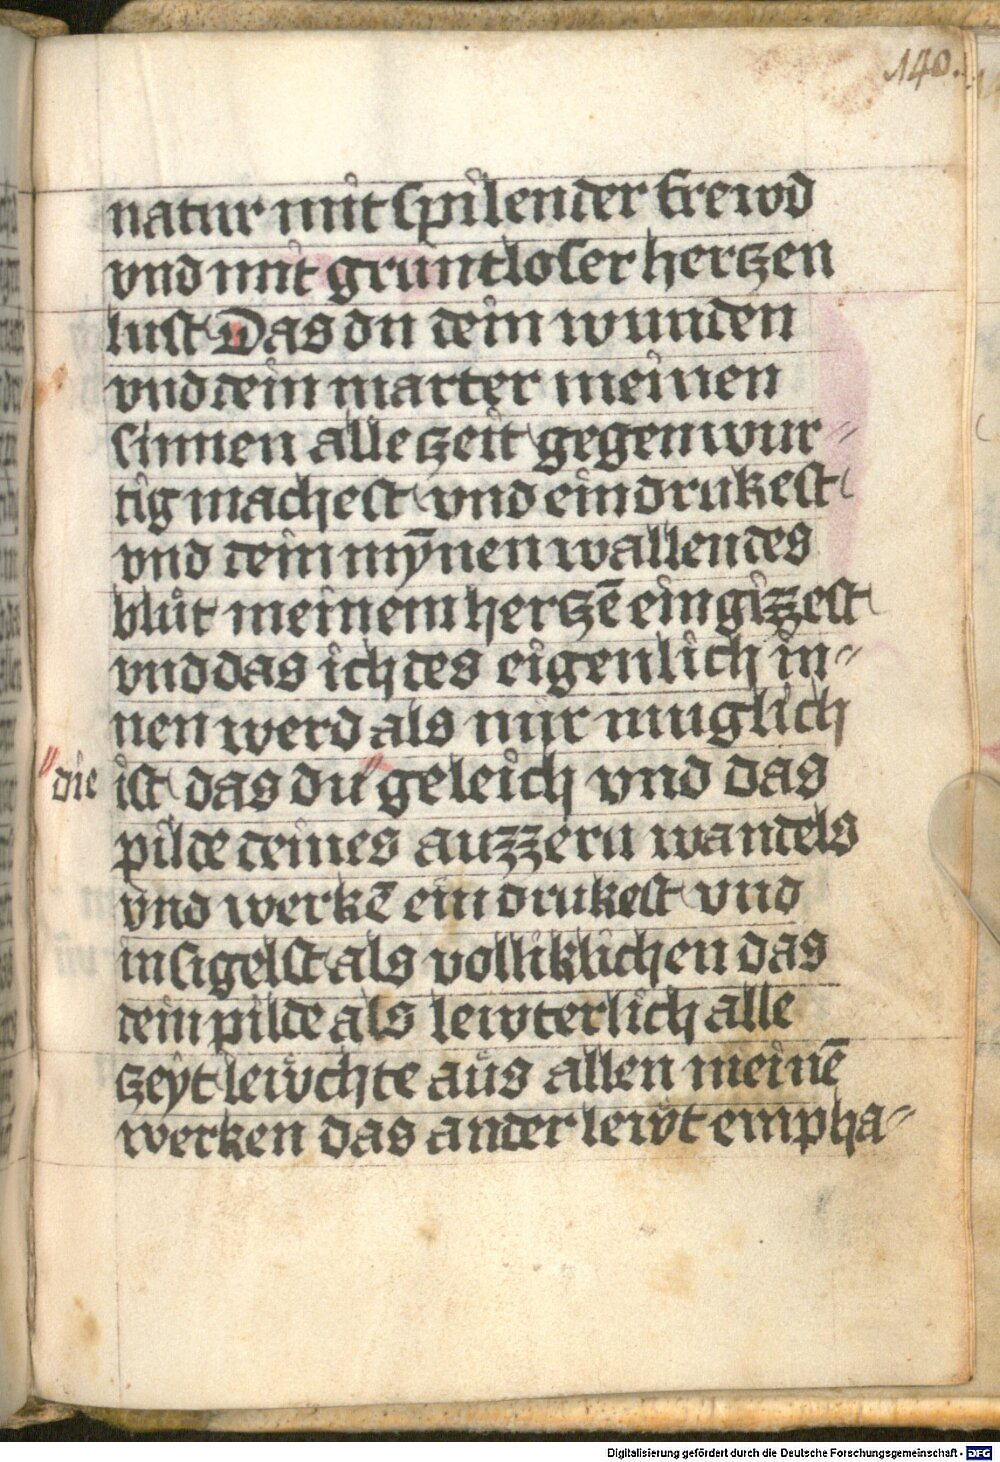 140.
natur mit spilender frewd
vnd mit gruntloser hertzen
lust Das du dein wunden
vnd dein marter meinen
sinnen alle zeit gegenwur〃
tig machest vnd eindrukest
vnd dein mȳnen wallendes
blůt meinem hertzē eingizzest
vnd das ich des eigenlich in〃
nen werd als mir muglich
〃die ist das du〃geleich vnd das
pilde deines auzzern wandels
vnd werkē ein drukest vnd
insigelst als volliklichen das
dein pilde als lewterlich alle
zeyt lewchte aus allen meinē
werken das ander lewt empha〃
Digitalisierung gefördert durch die Deutsche Forschungsgemeinschaft - DFG